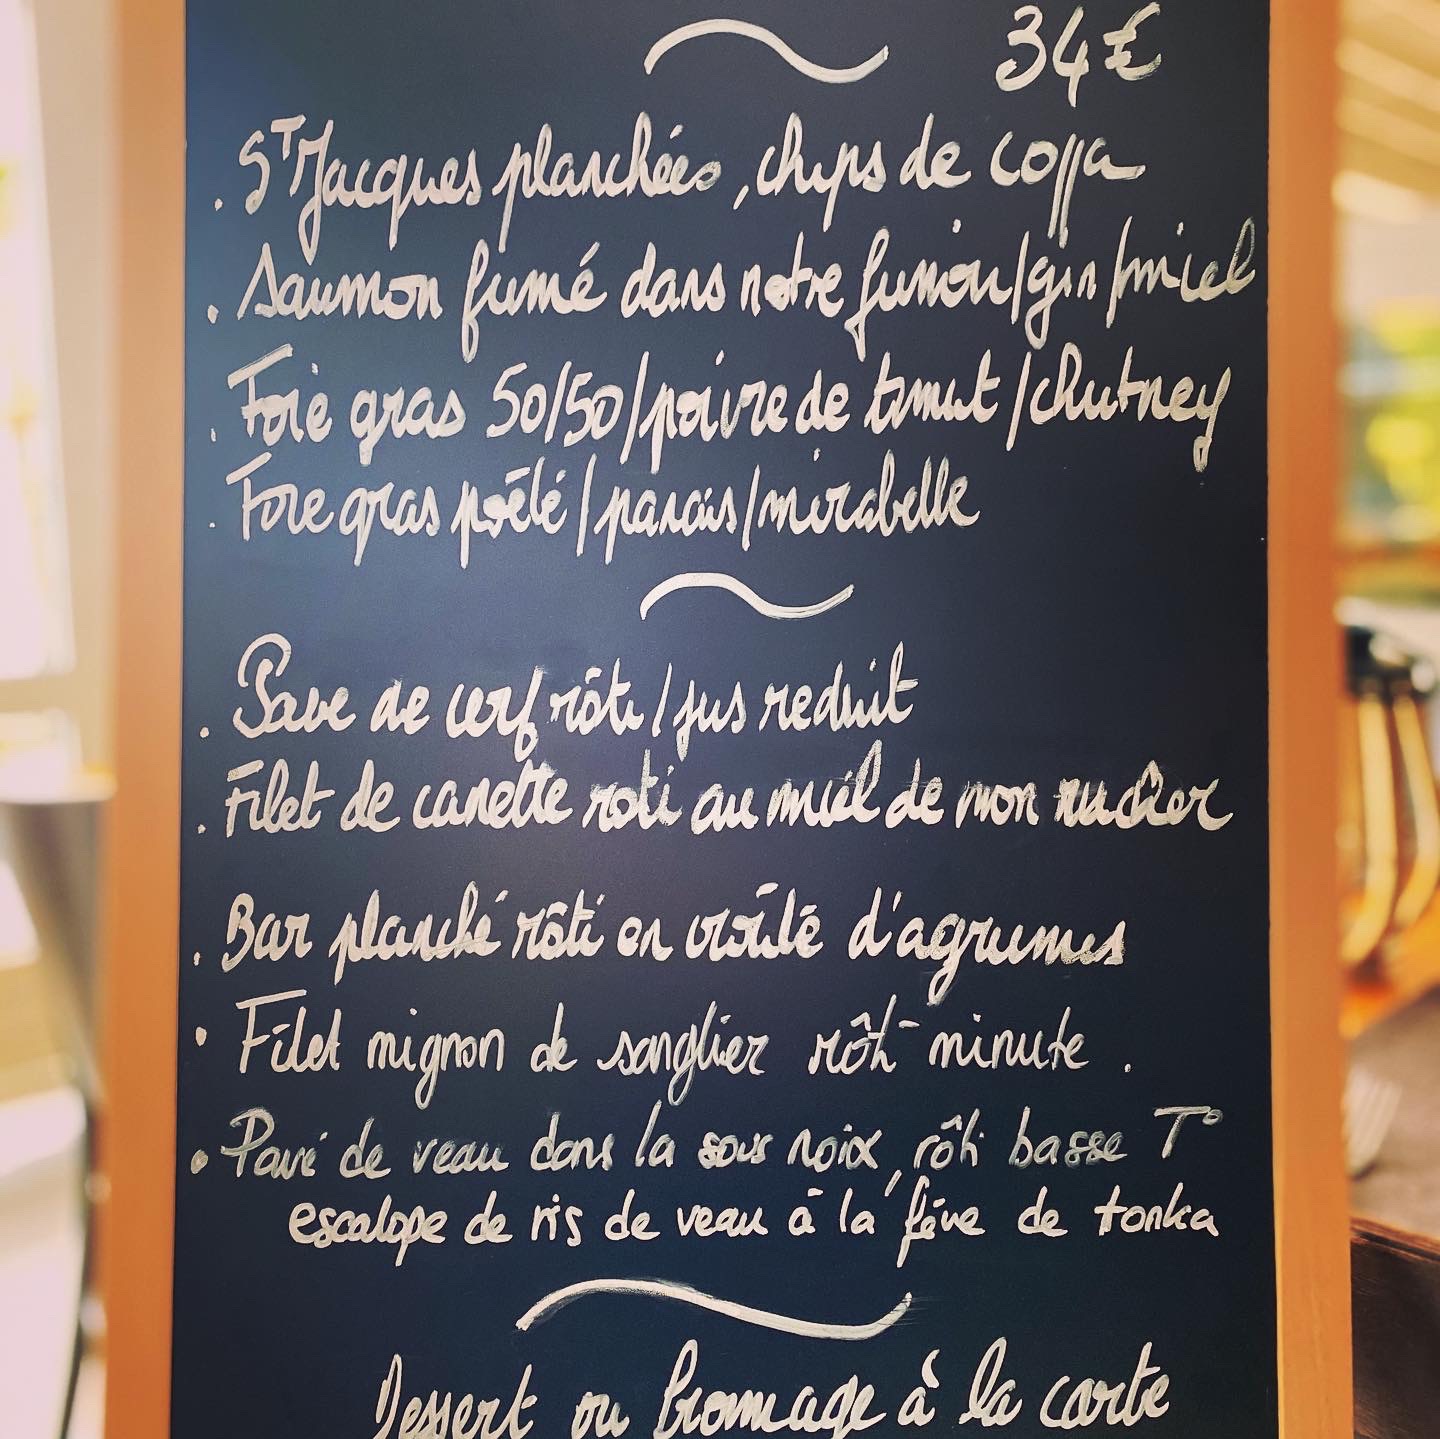 34€
. St Jacques planchées, chips de coppa
. Saumon fumé dans notre fumoir/gin/miel
. Foie gras 50/50/poivre de timut/chutney
. Foie gras poêlé/panais/mirabelle
. Pave de cerf rôti/jus reduit
. Filet de canette roti au miel de mon rucher
. Bar planché rôti en viõité d'agrumes
. Filet mignon de sanglier rôti minute.
. Pavé de veau dans la sous noix, rôti basse T°
escalope de ris de veau à la fêve de tonka
Dessert ou fromage à la carte